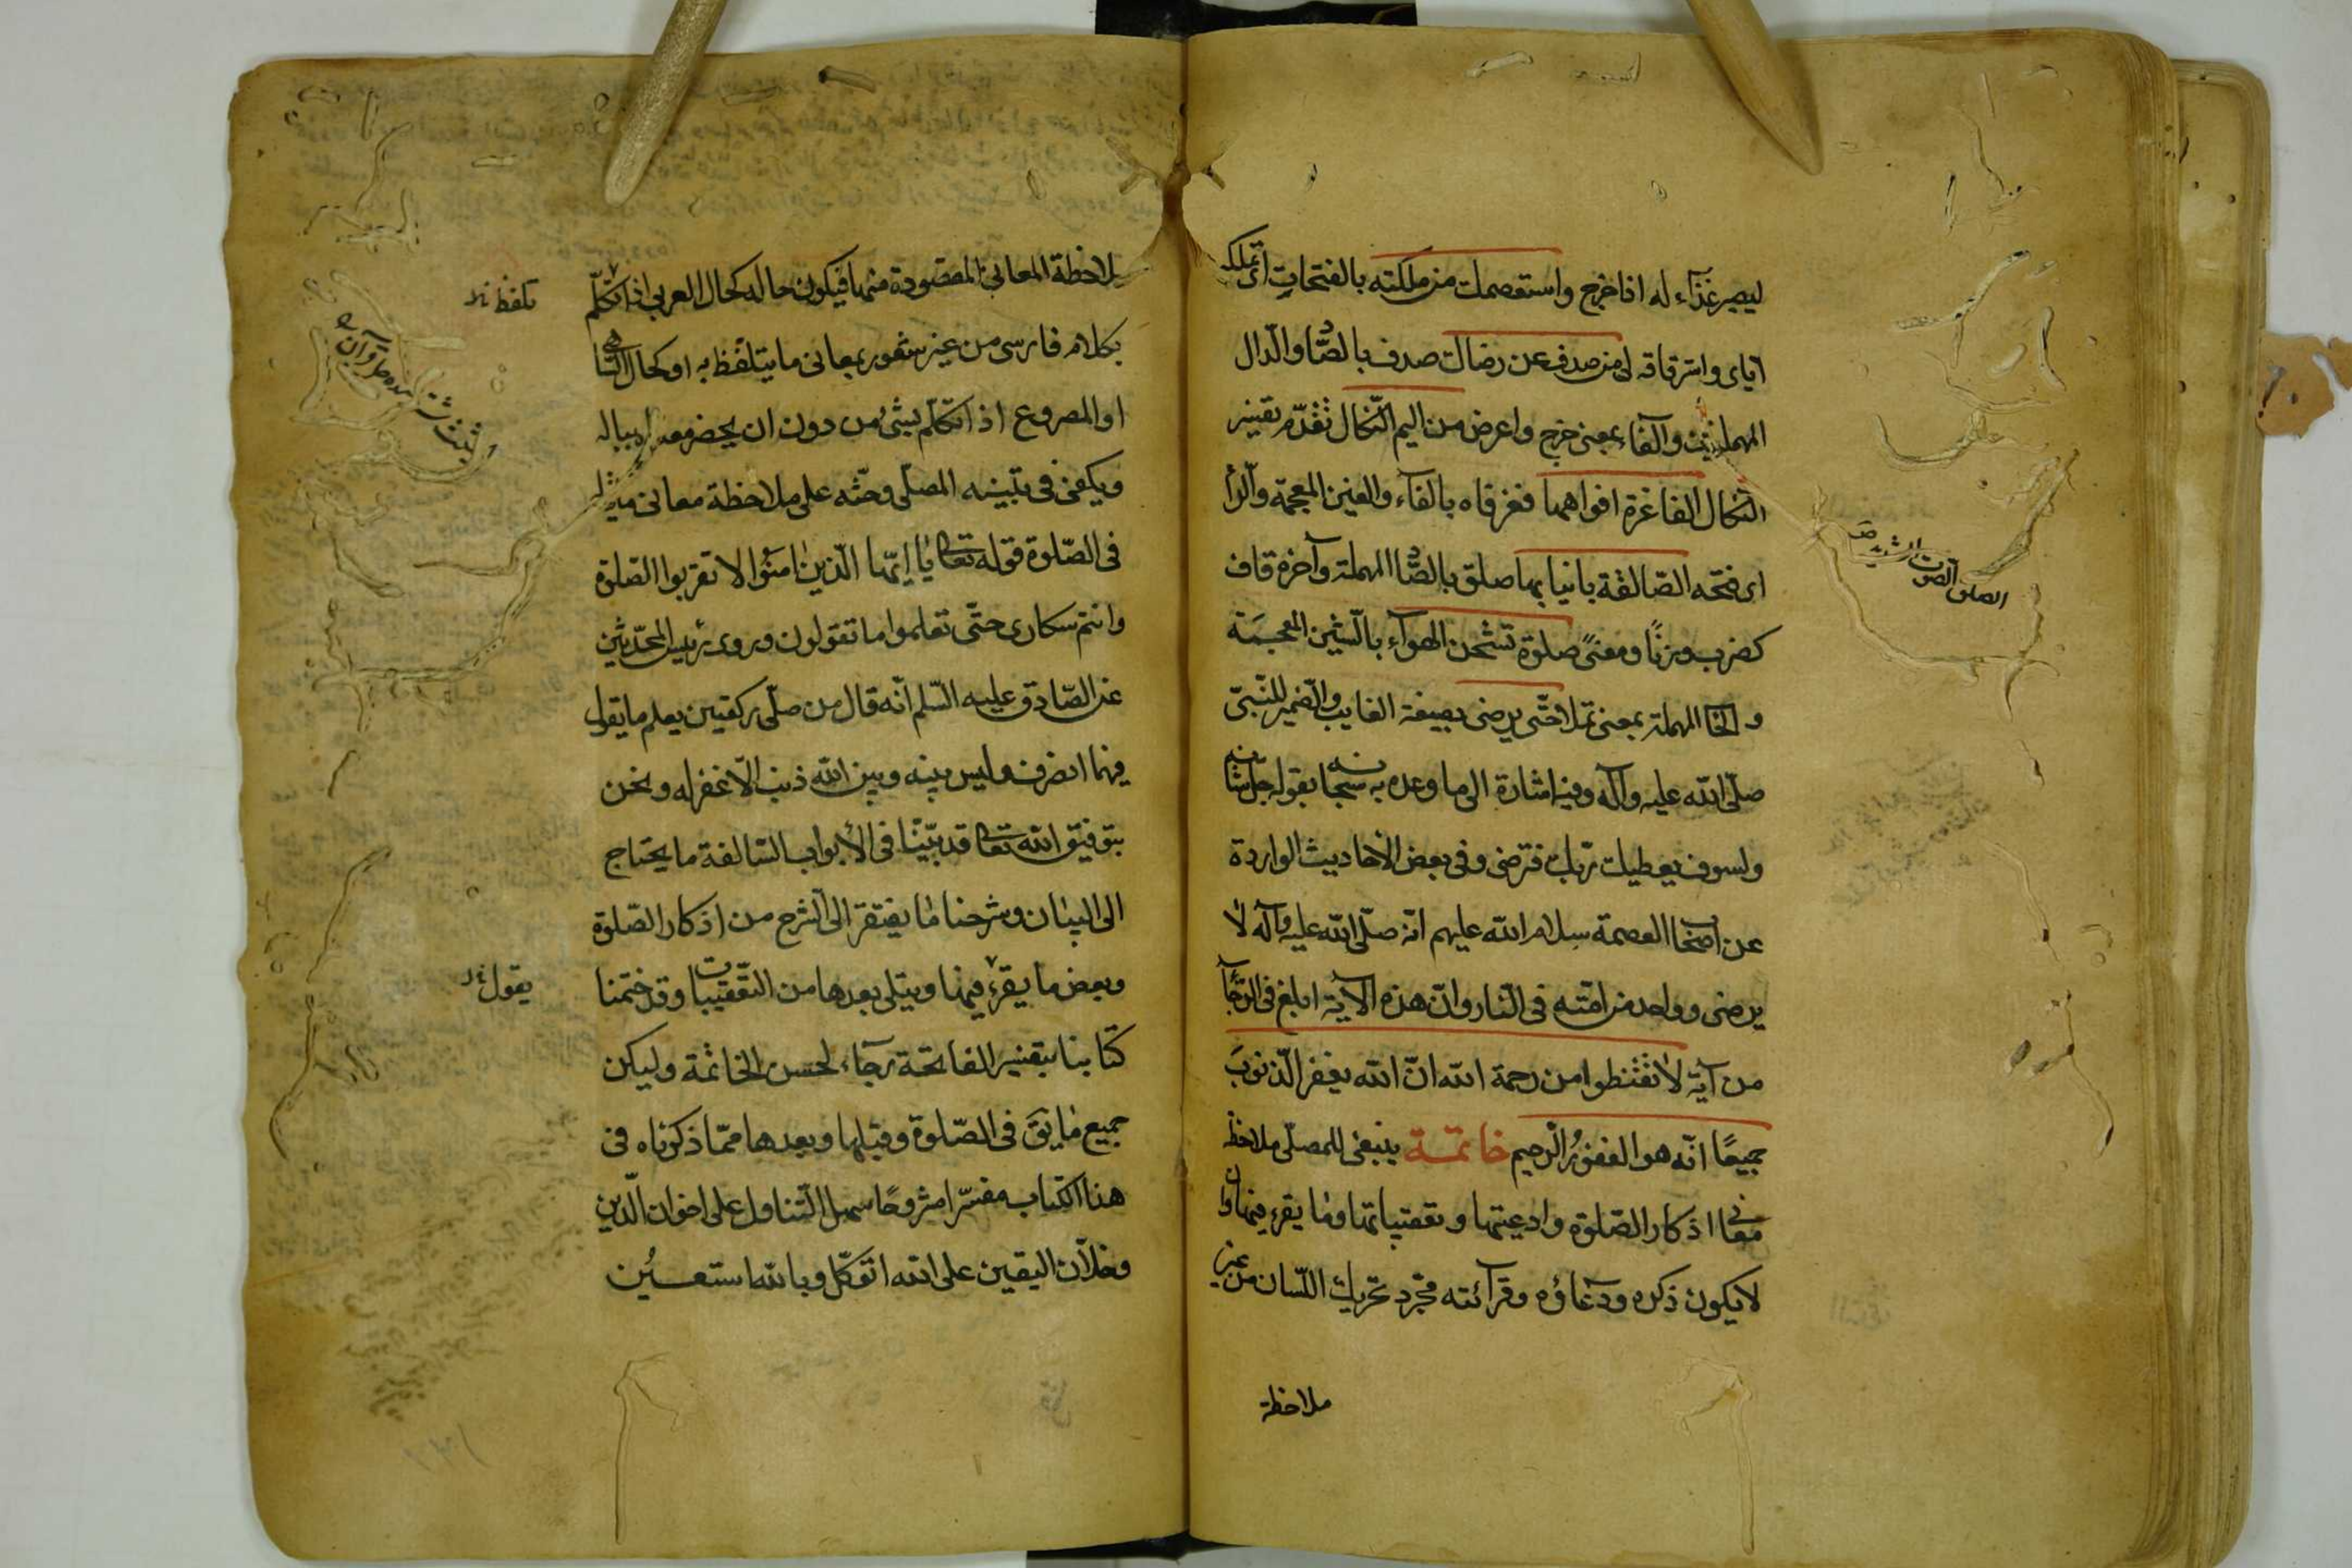 ليصير غذاء له اذا خرج واستعصمك من ملكته بالفتحات اى تملكه
اياى واسترقاقه لى من صدف عن رضاك صدف بالصاد والدال
المهملتين والفاء بمعنى خرج واعرض من اليم النكال تقدم تفسير
النكال الفاغرة افواهها فغرفاه بالفاء والغين المعجمة والراء
اى فتحه الصالقة بانيابها صلق بالصاد المهملة وآخره قاف
كضرب وزنًا ومعنىً صلوة تشحن الهوآء بالشين المعجمة
والحا المهملة بمعنى تملا حتّى يرضى بصيغة الغايب والضمير للنّبىّ
صلّى الله عليه وآله وفيه اشارة الى ما وعده به سبحانه بقوله جلّ شانه
ولسوف يعطيك ربّك فترضى وفى بعض الأحاديث الواردة
عن اصحاب العصمة سلام الله عليهم انّه صلّى الله عليه وآله لا
يرضى وواحد من امّته فى النّار وانّ هذه الآية ابلغ فى الرّجآء
من آية لا تقنطوا من رحمة الله انّ الله يغفر الذّنوبَ
جميعًا انّه هو الغفورُ الرّحيم خاتمة ينبغى للمصلّى ملاحظة
معانى اذكار الصّلوة وادعيتها وتعقيباتها وما يقرء فيها وان
لا يكون ذكره ودعاؤه وقرآئته مجّرد تحريك اللّسان من غير
ملاحظة
الصلق الصوت الشديد صَ
ملاحظة المعانى المقصودة منها فيكون حاله كحال العربى اذا تكلّم
تلفظ
بكلام فارسى من غير شعور بمعانى ما يتلفّظ به او كحال السّاهى
او المصروع اذا تكلّم بشىء من دون ان يحضر معه بباله
ويكفى فى تنبيه المصلّى وحثّه على ملاحظة معانى ما يقوله
فى الصّلوة قوله تعالى يا ايّها الّذين امَنُوا لا تقربوا الصّلوة
وانتم سكارى حتّى تعلموا ما تقولون وروى رئيس المحدّثين
عن الصّادق عليه السّلم انّه قال من صلّى ركعتين يعلم ما يقول
فيهما انصرف وليس بينه وبين الله ذنب الّا غفر له ونحن
بتوفيق الله تعالى قد بيّنّا فى الأبواب السّالفة ما يحتاج
الى البيان وشرحنا ما يفتقر الى الشّرح من اذكار الصّلوة
وبعض ما يقرء فيها ويتلى بعدها من التّعقيبات وقد ختمنا
يقول
كتابنا بتفسير الفاتحة رجآء لحسن الخاتمة وليكن
جميع ما يق فى الصّلوة وقبلها وبعدها ممّا ذكرناه فى
هذا الكتاب مفسّرا مشروحًا سهل التّناول على اخوان الدّين
وخلّان اليقين على الله اتوكّل وبالله استعين